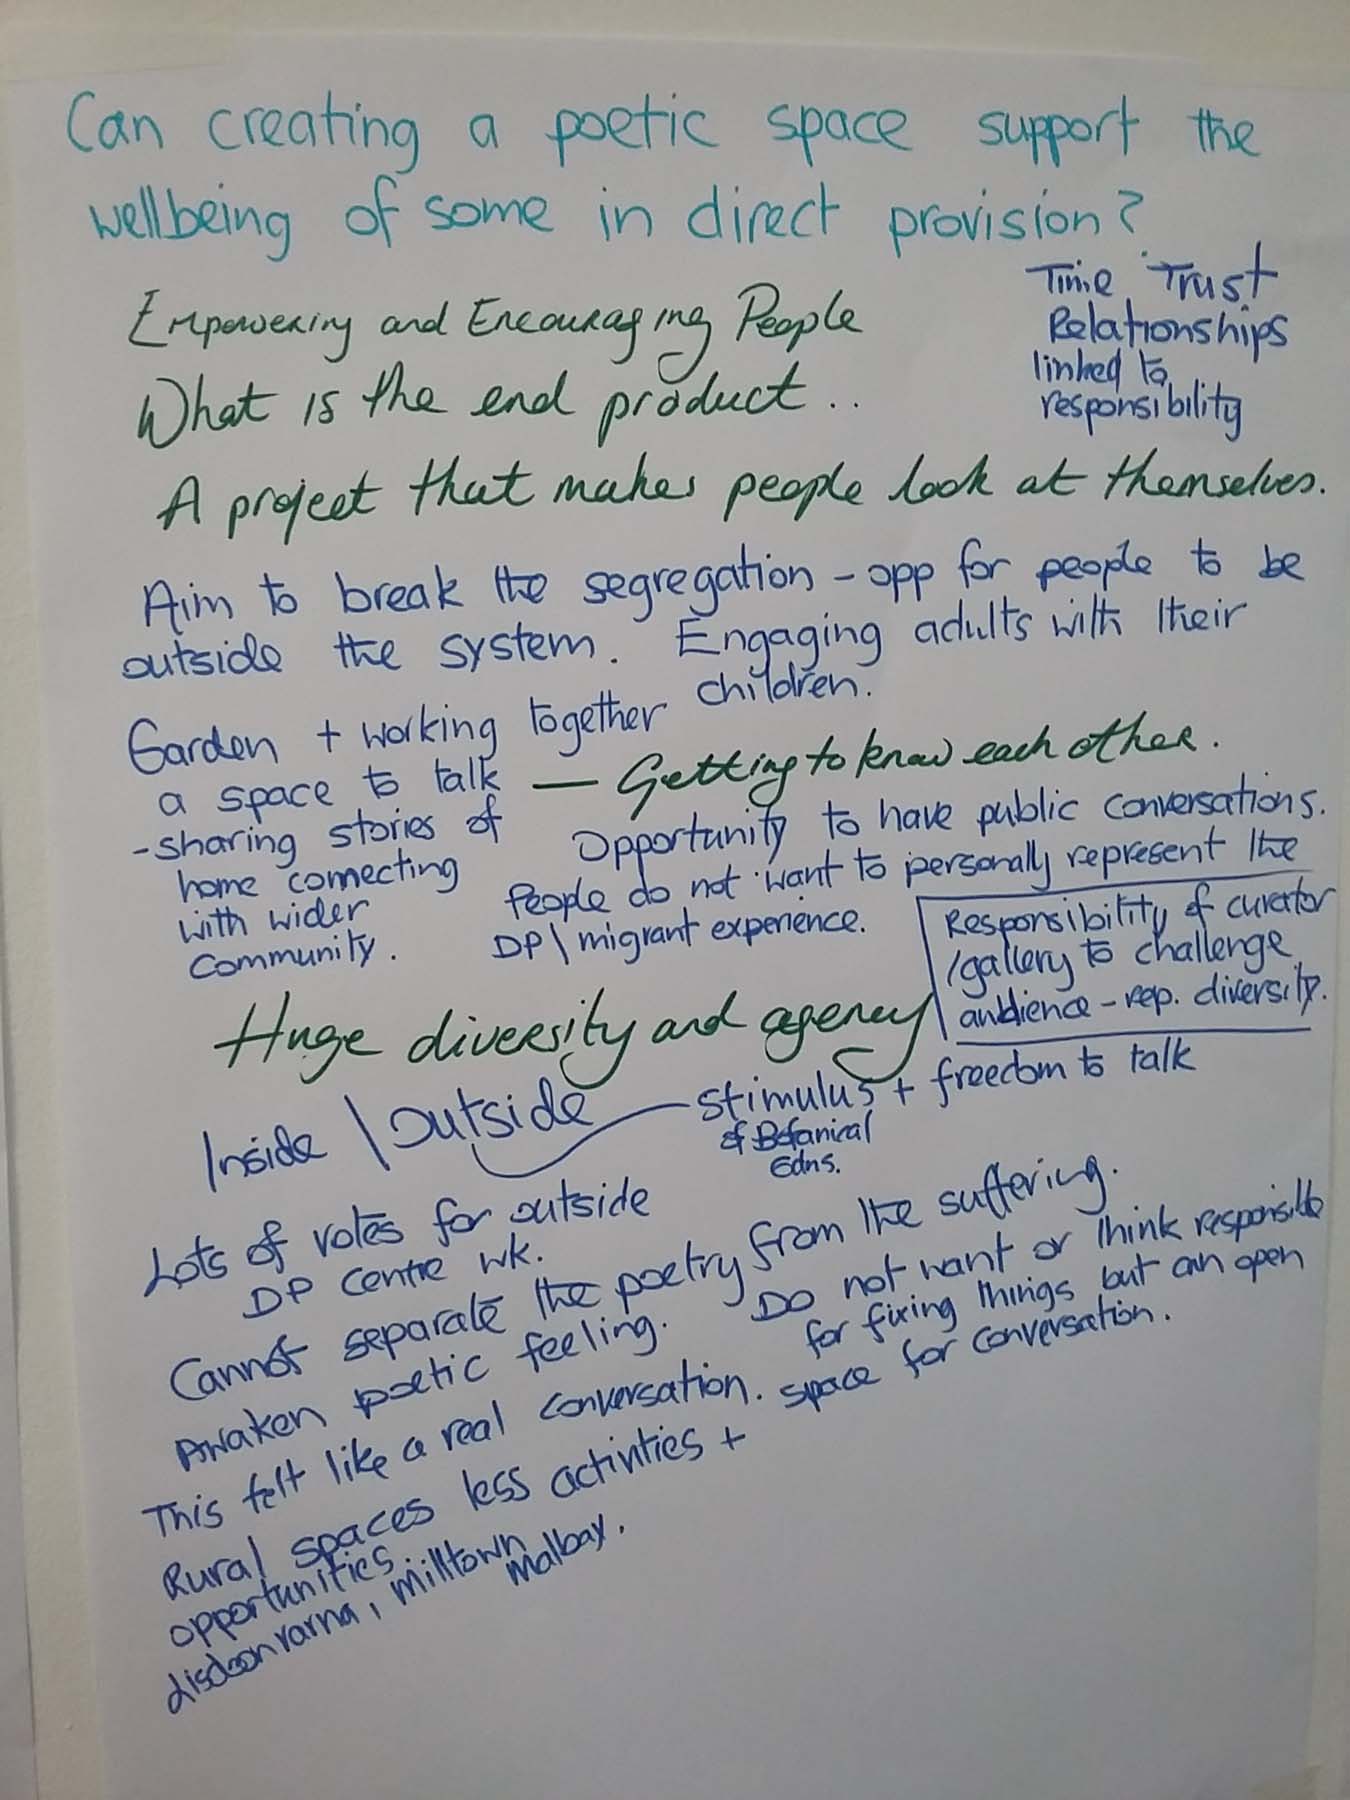 Can creating a poetic space support the
wellbeing of some in direct provision?
Time Trust
Relationships
linked to
responsibility
Empowering and Encouraging People
What is the end product..
A project that makes people look at themselves.
Aim to break the segregation – opp for people to be
outside the system. Engaging adults with their
children.
Garden + working together
a space to talk — Getting to know each other.
- sharing stories of
home connecting
with wider
community.
Opportunity to have public conversations.
People do not want to personally represent the
DP \ migrant experience.
Responsibility of curator
/gallery to challenge
audience – rep. diversity.
Huge diversity and agency
Inside \ outside — stimulus + freedom to talk
of Botanical
Gdns.
Lots of votes for outside
DP centre wk.
Cannot separate the poetry from the suffering.
Awaken poetic feeling.
Do not want or think responsible
for fixing things but an open
space for conversation.
This felt like a real conversation.
Rural spaces less activities +
opportunities
Lisdoonvarna, Milltown
Malbay.